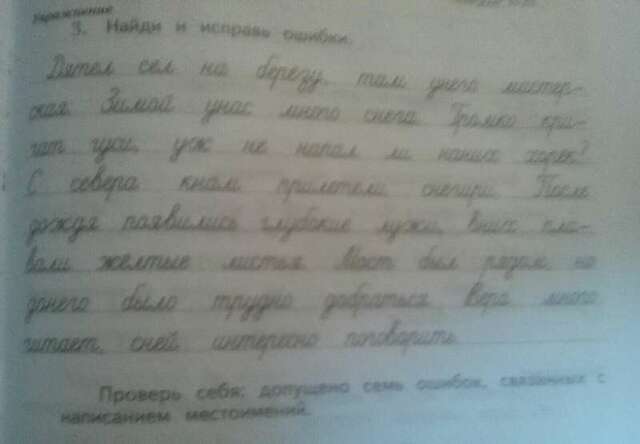 Упражнение
3. Найди и исправь ошибки.
Дятел сел на березу, там унего мастер-
ская. Зимой унас много снега. Громко кри-
чат гуси, уж не напал ли наних хорек?
С севера кнам прилетели снегири. После
дождя появились глубокие лужи, вних пла-
вали желтые листья. Мост был рядом, но
донего было трудно добраться. Вера много
читает, сней интересно поговорить.
Проверь себя: допущено семь ошибок, связанных с
написанием местоимений.